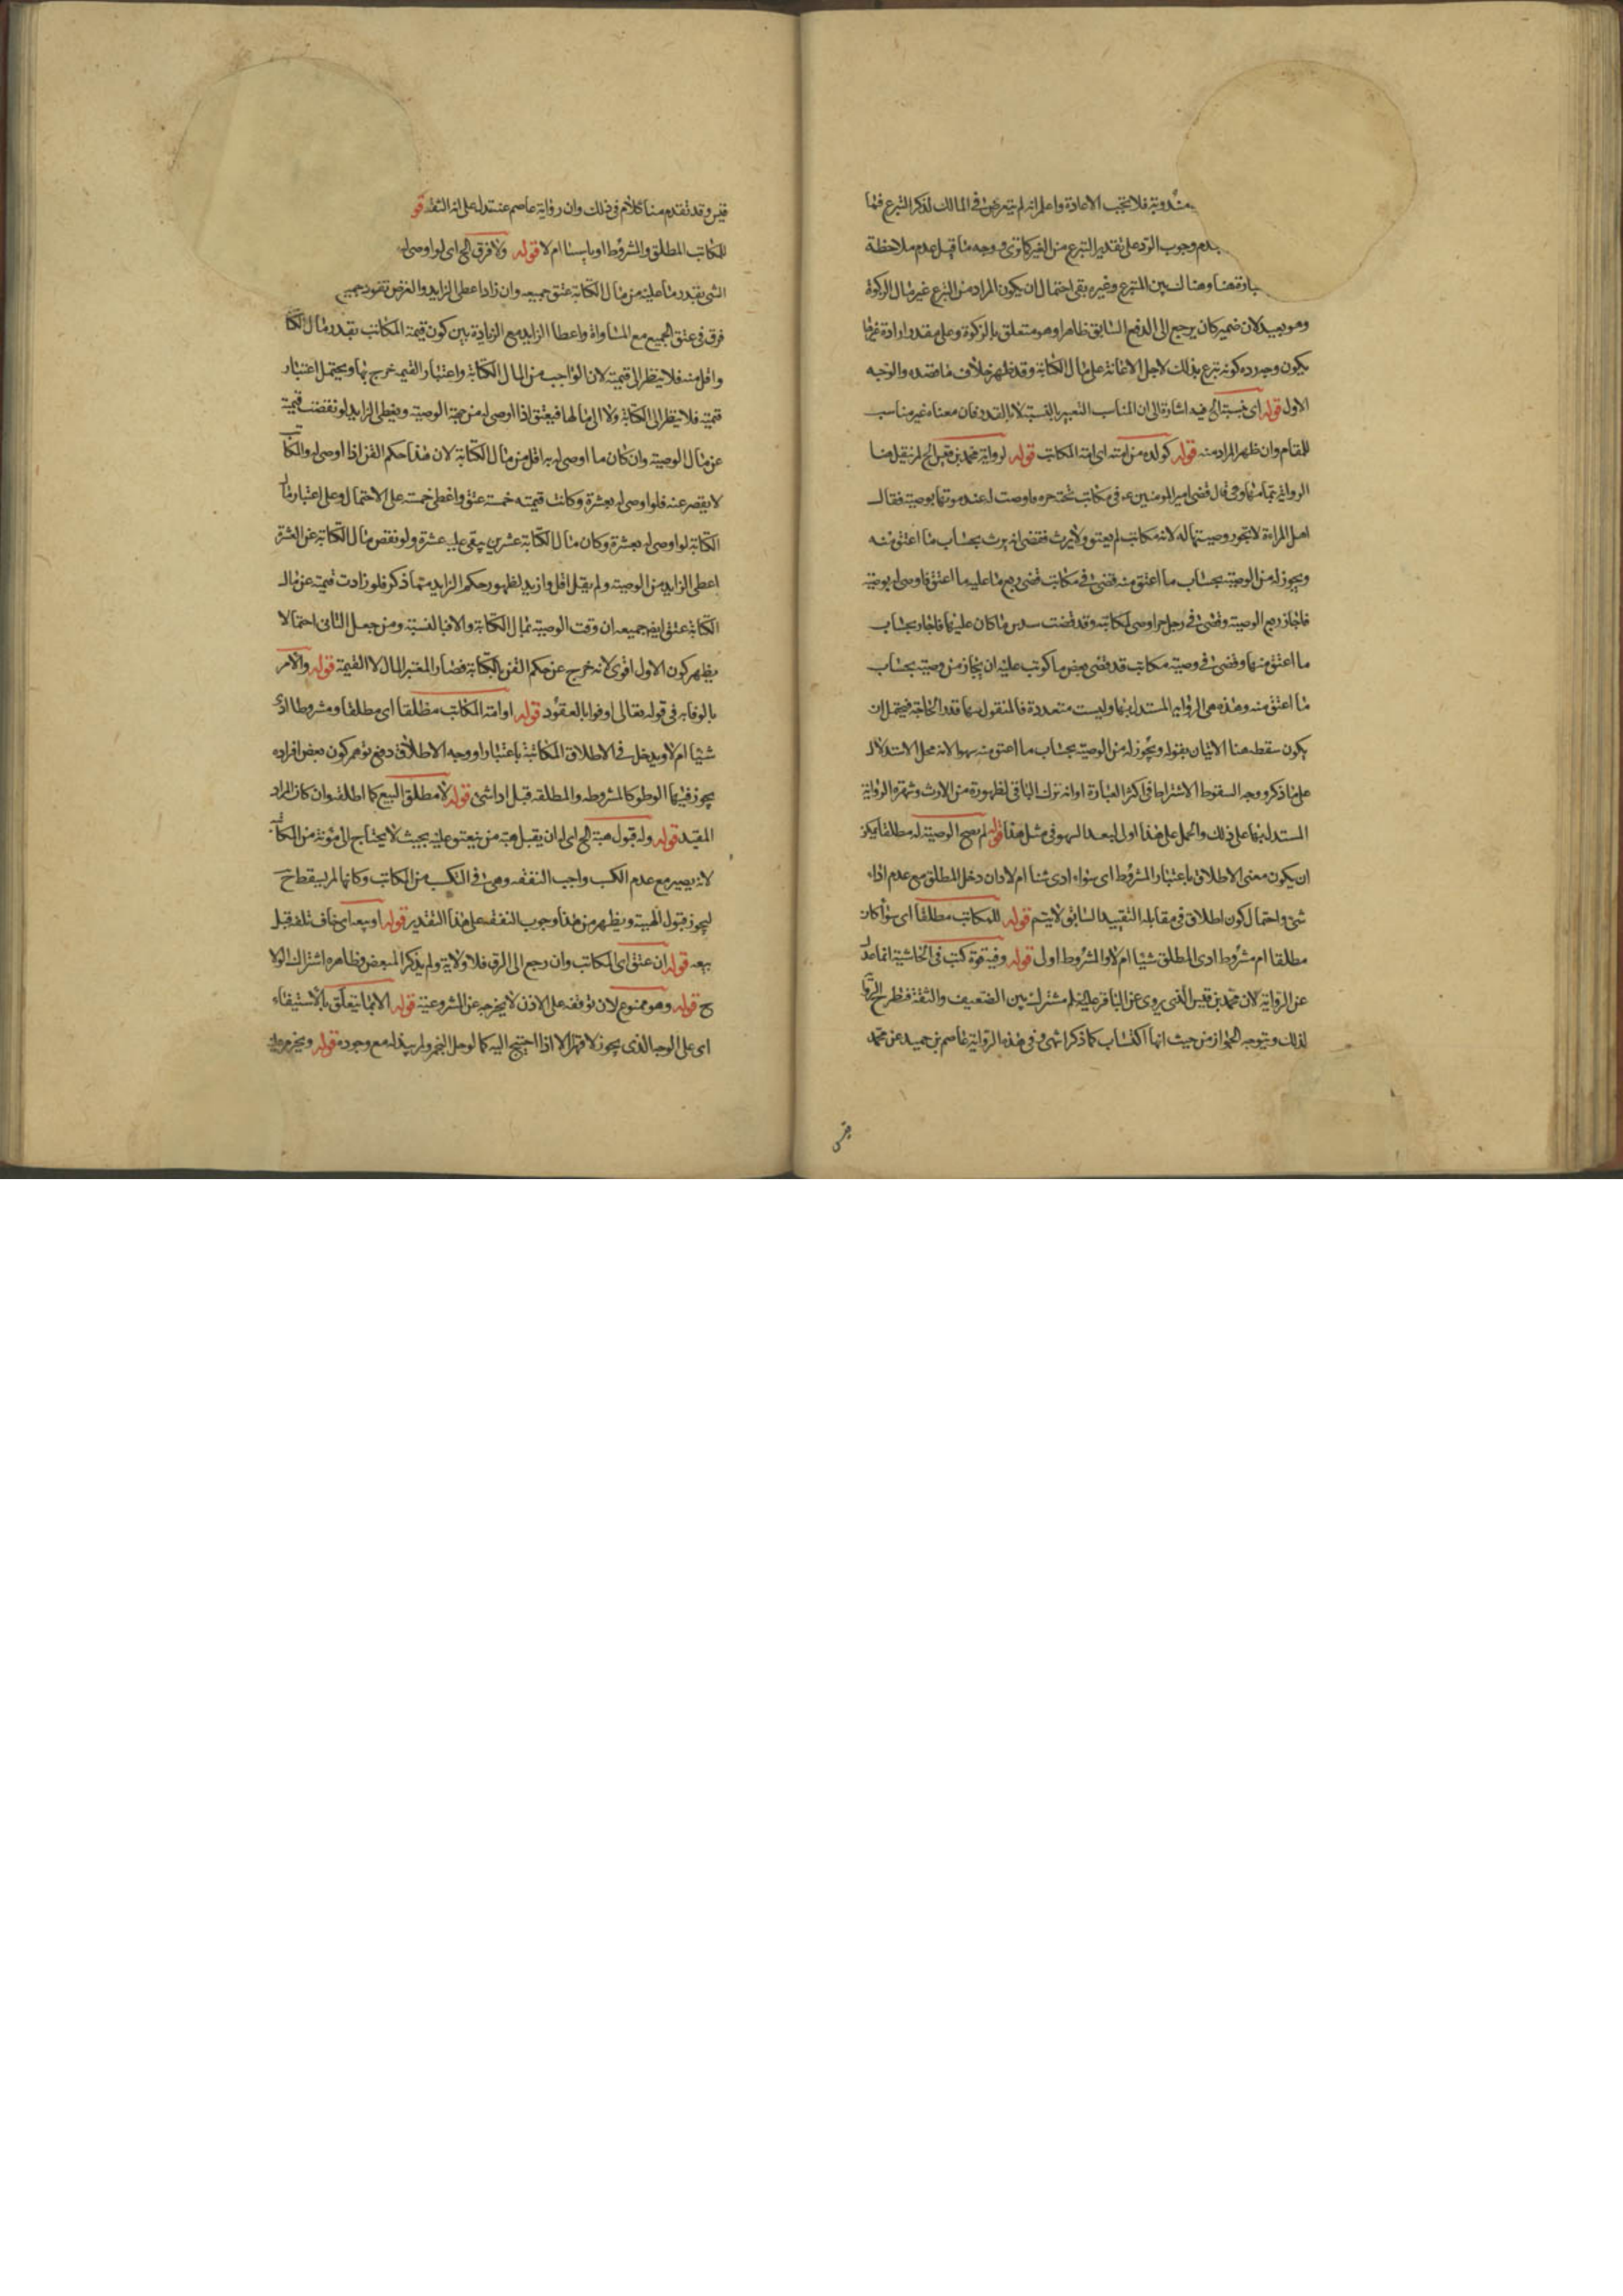 مندوبة فلا تجب الاعادة واعلم انه لم يتعرض في المالك لذكر التبرع فيها
عدم وجوب الرد على تقدير التبرع من الغير كما ترى ووجه ما قيل عدم ملاحظة
هنا وهناك بين المتبرع وغيره بقى احتمال ان يكون المراد من التبرع غير مال الزكوة
وهو بعيد لان ضمير كان يرجع الى الدفع السابق ظاهرا وهو متعلق بالزكوة وعلى مقدو ارادة غيرها
يكون وجه رده كونه تبرع بذلك لاجل الاعانة على مال الكتابة وقد ظهر خلاف ما قصده والوجه
الاول قوله اى نسبة الخ فيه اشارة الى ان المناسب التعبير بالنسبة لا بالقدر فان معناه غير مناسب
للمقام وان ظهر المراد منه قوله كولده من امته اى امة المكاتب قوله لرواية محمد بن قيس الخ لم ينقل هنا
الرواية بتمامها وهى قال قضى امير المومنين ع في مكاتب تحته حره فاوصت له عند موتها بوصية فقال
اهل المراءة لا تجوز وصيتها له لانه مكاتب لم يعتق ولا يرث فقضى انه يرث بحساب ما اعتق منه
ويجوز له من الوصية بحساب ما اعتق منه وقضى في مكاتب قضى ربع ما عليه ما اعتق فاوصى له بوصية
فاجاز ربع الوصية وقضى في رجل حر اوصى لمكاتبه وقد قضت سدس ما كان عليها فاجاز بحساب
ما اعتق منها وقضى في وصية مكاتب قد قضى بعض ما كوتب عليه ان يجاز من وصيته بحساب
ما اعتق منه وهذه هى الرواية المستدل بها وليست متعددة فالمنقول منها قدر الحاجة فيحتمل ان
يكون سقط هنا الاتيان بقوله ويجوز له من الوصية بحساب ما اعتق منه سهوا لانه محل الاستدلال
على ما ذكر ووجه السقوط الاشتراط في اكثر العبارة او انه ترك الباقي لظهوره من الارث وشهرة الرواية
المستدل بها على ذلك والحمل على هذا اولى لبعد السهو في مثل هذا قوله لم تصح الوصية له مطلقا يمكن
ان يكون معنى الاطلاق باعتبار المشروط اى سواء ادى شيئا ام لا وان دخل المطلق مع عدم اداء
شئ واحتمال كون اطلاق في مقابله التقييد السابق لا يتم قوله للمكاتب مطلقا اى سواء كان
مطلقا ام مشروط ادى المطلق شيئا ام لا والمشروط اول قوله وفيه قوة كتب في الحاشية انما عدل
عن الرواية لان محمد بن قيس الذى يروى عن الباقر عليه لم مشترك بين الضعيف والثقة فتطرح الروايا
لذلك ويتوجه الجواز من حيث انها اكتساب كما ذكر انتهى وفى هذه الرواية عاصم بن حميد عن محمد
قيس
قيس وقد تقدم منا كلام في ذلك وان رواية عاصم عنه تدل على انه الثقة قو
للمكاتب المطلق والمشروط ام لا قوله ولا فرق الخ اى لو اوصى له
الشى بقدر ما عليه من مال الكتابة عتق جميعه وان زاد اعطى الزايد والغرض نفوذ جميع
فرق في عتق الجميع مع المساواة واعطا الزايد مع الزيادة بين كون قيمة المكاتب بقدر مال الكتا
واقل منه فلا ينظر الى قيمته لان الواجب من المال الكتابة واعتبار القيمه خرج بها ويحتمل اعتبار
قيمته فلا ينظر الى الكتابة ولا الى مالها فيعتق اذا اوصى له من جهة الوصية ويعطى الزايد لو نقصت قيمته
عن مال الوصية وان كان ما اوصى له به اقل من مال الكتابة لان هذا حكم القن اذا اوصى له والكتا
لا يقصر عنه فلو اوصى له بعشرة وكانت قيمته خمسة عتق واعطى خمسة على الاحتمال وعلى اعتبار مال
الكتابة لو اوصى له بعشرة وكان مال الكتابة عشرين يبقى عليه عشرة ولو نقص مال الكتابة عن العشرة
اعطى الزايد من الوصية ولم يقل اقل وازيد لظهور حكم الزايد مما ذكر فلو زادت قيمته عن مال
الكتابة عتق ايضا جميعه ان وفت الوصية بمال الكتابة والا فبالنسبة ومن جعل الثانى احتمالا
يظهر كون الاول اقوى لانه خرج عن حكم القن بالكتابة فصار المعتبر المال لا القيمة قوله والامر
بالوفاء به في قوله تعالى اوفوا بالعقود قوله او امته المكاتب مطلقا اى مطلقا ومشروطا ادى
شيئا ام لا ويدخل في الاطلاق المكاتبة باعتبار ووجه الاطلاق دفع توهم كون بعض افراده
يجوز فيها الوطو كالمشروطه والمطلقه قبل اداشئ قوله لا مطلق البيع كما اطلقه وان كان المراد
المقيد قوله وله قبول هبة الخ اى له ان يقبل هبة من ينعتق عليه بحيث لا يحتاج الى مؤنة من المكاتب
لانه يصير مع عدم الكسب واجب النفقه وهى في الكسب من المكاتب وكانها لم يسقط ح
ليجوز قبول الهبة ويظهر من هذا وجوب النفقه على هذا التقدير قوله او بيعه اى خاف تلفه قبل
بيعه قوله ان عتق اى المكاتب وان رجع الى الرق فلا ولاية ولم يذكر المبعض وظاهره اشتراك الولا
ح قوله وهو ممنوع لان توقفه على الاذن لا يخرجه عن المشروعية قوله الا بما يتعلق بالاستيفاء
اى على الوجه الذى يجوز لا قهرا الا اذا احتيج اليه كما لو حل النجم ولم يبذله مع وجوده قوله ويحرم عليه